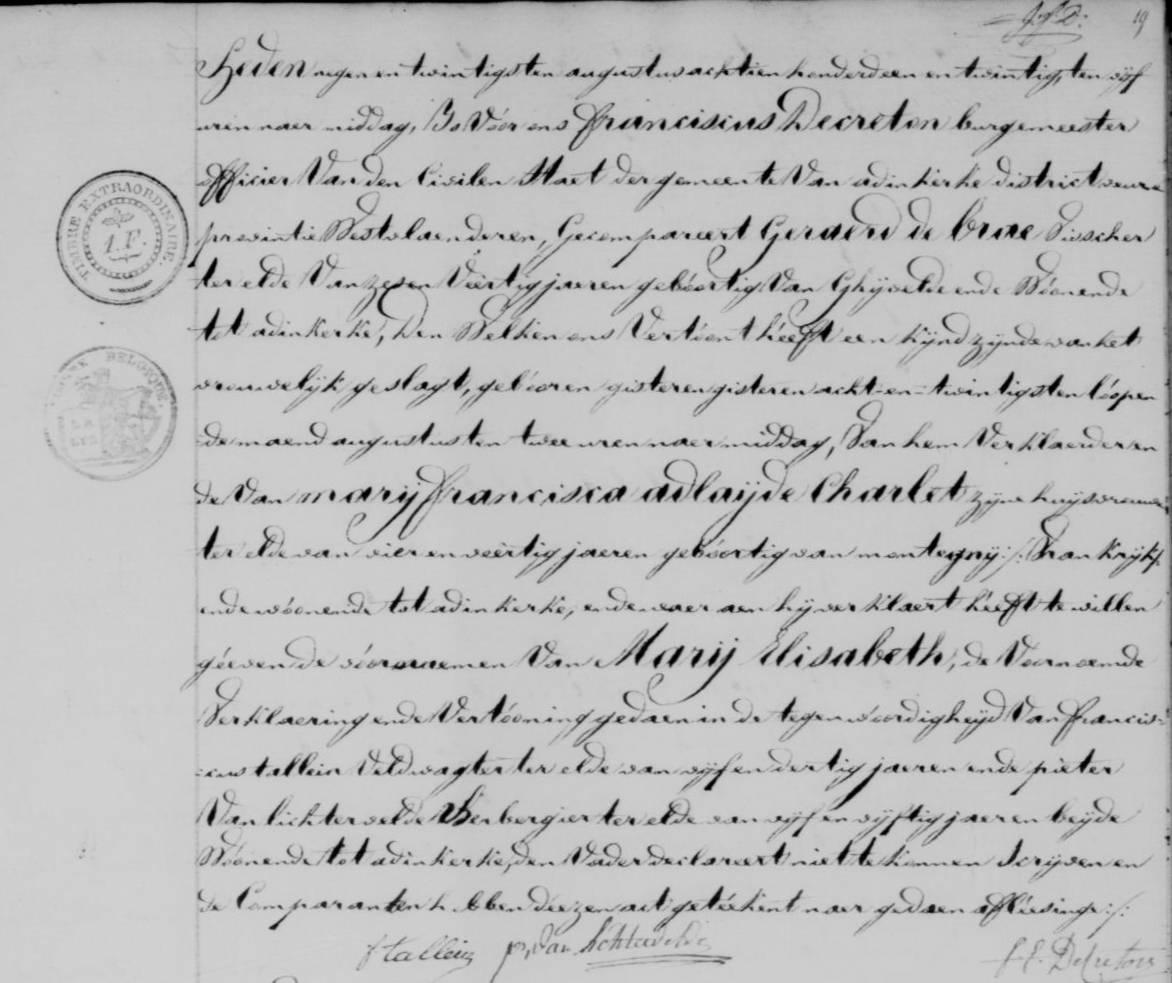 J:f:D: 19
Heden negen en twintigsten augustus achtien honderd een en twintig, ten vijf
uren naer middag, Bevóór ons franciscus Decreton burgemeester
officier Van den Civilen Staet der gemeente Van adinkerke district veurne
provintie Westvlaenderen, Gecompareert Geraerd de brae Visscher
ter elde Van zeven Veertig jaeren gebóortig Van Ghijvelde ende Wóonende
tot adinkerke, Den Welken ons Vertóont hééft een kijnd zijnde van het
vrouwelijk geslagt, gebóoren gisteren gisteren acht-en-twintigsten lóopen
de maend augustus ten twee uren naer middag, Van hem Verklaerder en
de Van marij francisca adlaijde Charlet zijne huijsvrouwe
ter elde van vier en veértig jaeren gebóortig van montegnij :/: Vrankrijk/:
ende wóonende tot adinkerke, ende waer aen hij verklaert hééft te willen
gééven de vóornaemen Van Marij Elisabeth, de Voornoemde
Verklaering ende Vertóoning gedaen in de tegenwóordigheijd Van francis-
-cus tallein Veldwagter ter elde van vijf en dertig jaeren ende pieter
Van lichtervelde herbergier ter elde van vijf en vijftig jaeren beijde
Wóonende tot adinkerke, den Vader declareert niet te konnen Scrijven en
de Comparanten hebben déézen act getéékent naer gedaen afléésinge :/:
f tallein p, van lichtervelde f. E. Decreton
TIMBRE EXTRAORDINAIRE.
1.F.
BELGIQUE